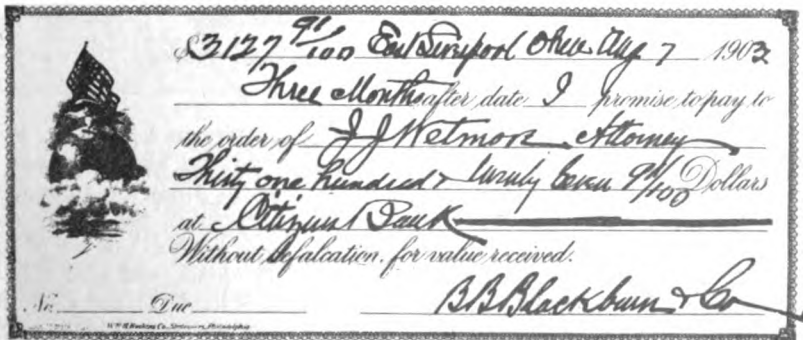 $3127 91/100 East Liverpool Ohio Aug 7 1903
Three Months after date I promise to pay to
the order of J J Wetmore Attorney
Thirty one hundred & twenty seven 91/100 Dollars
at Citizens Bank
Without defalcation, for value received.
No. Due B B Blackburn & Co
Wm H Hoskins Co., Stationers, Philadelphia